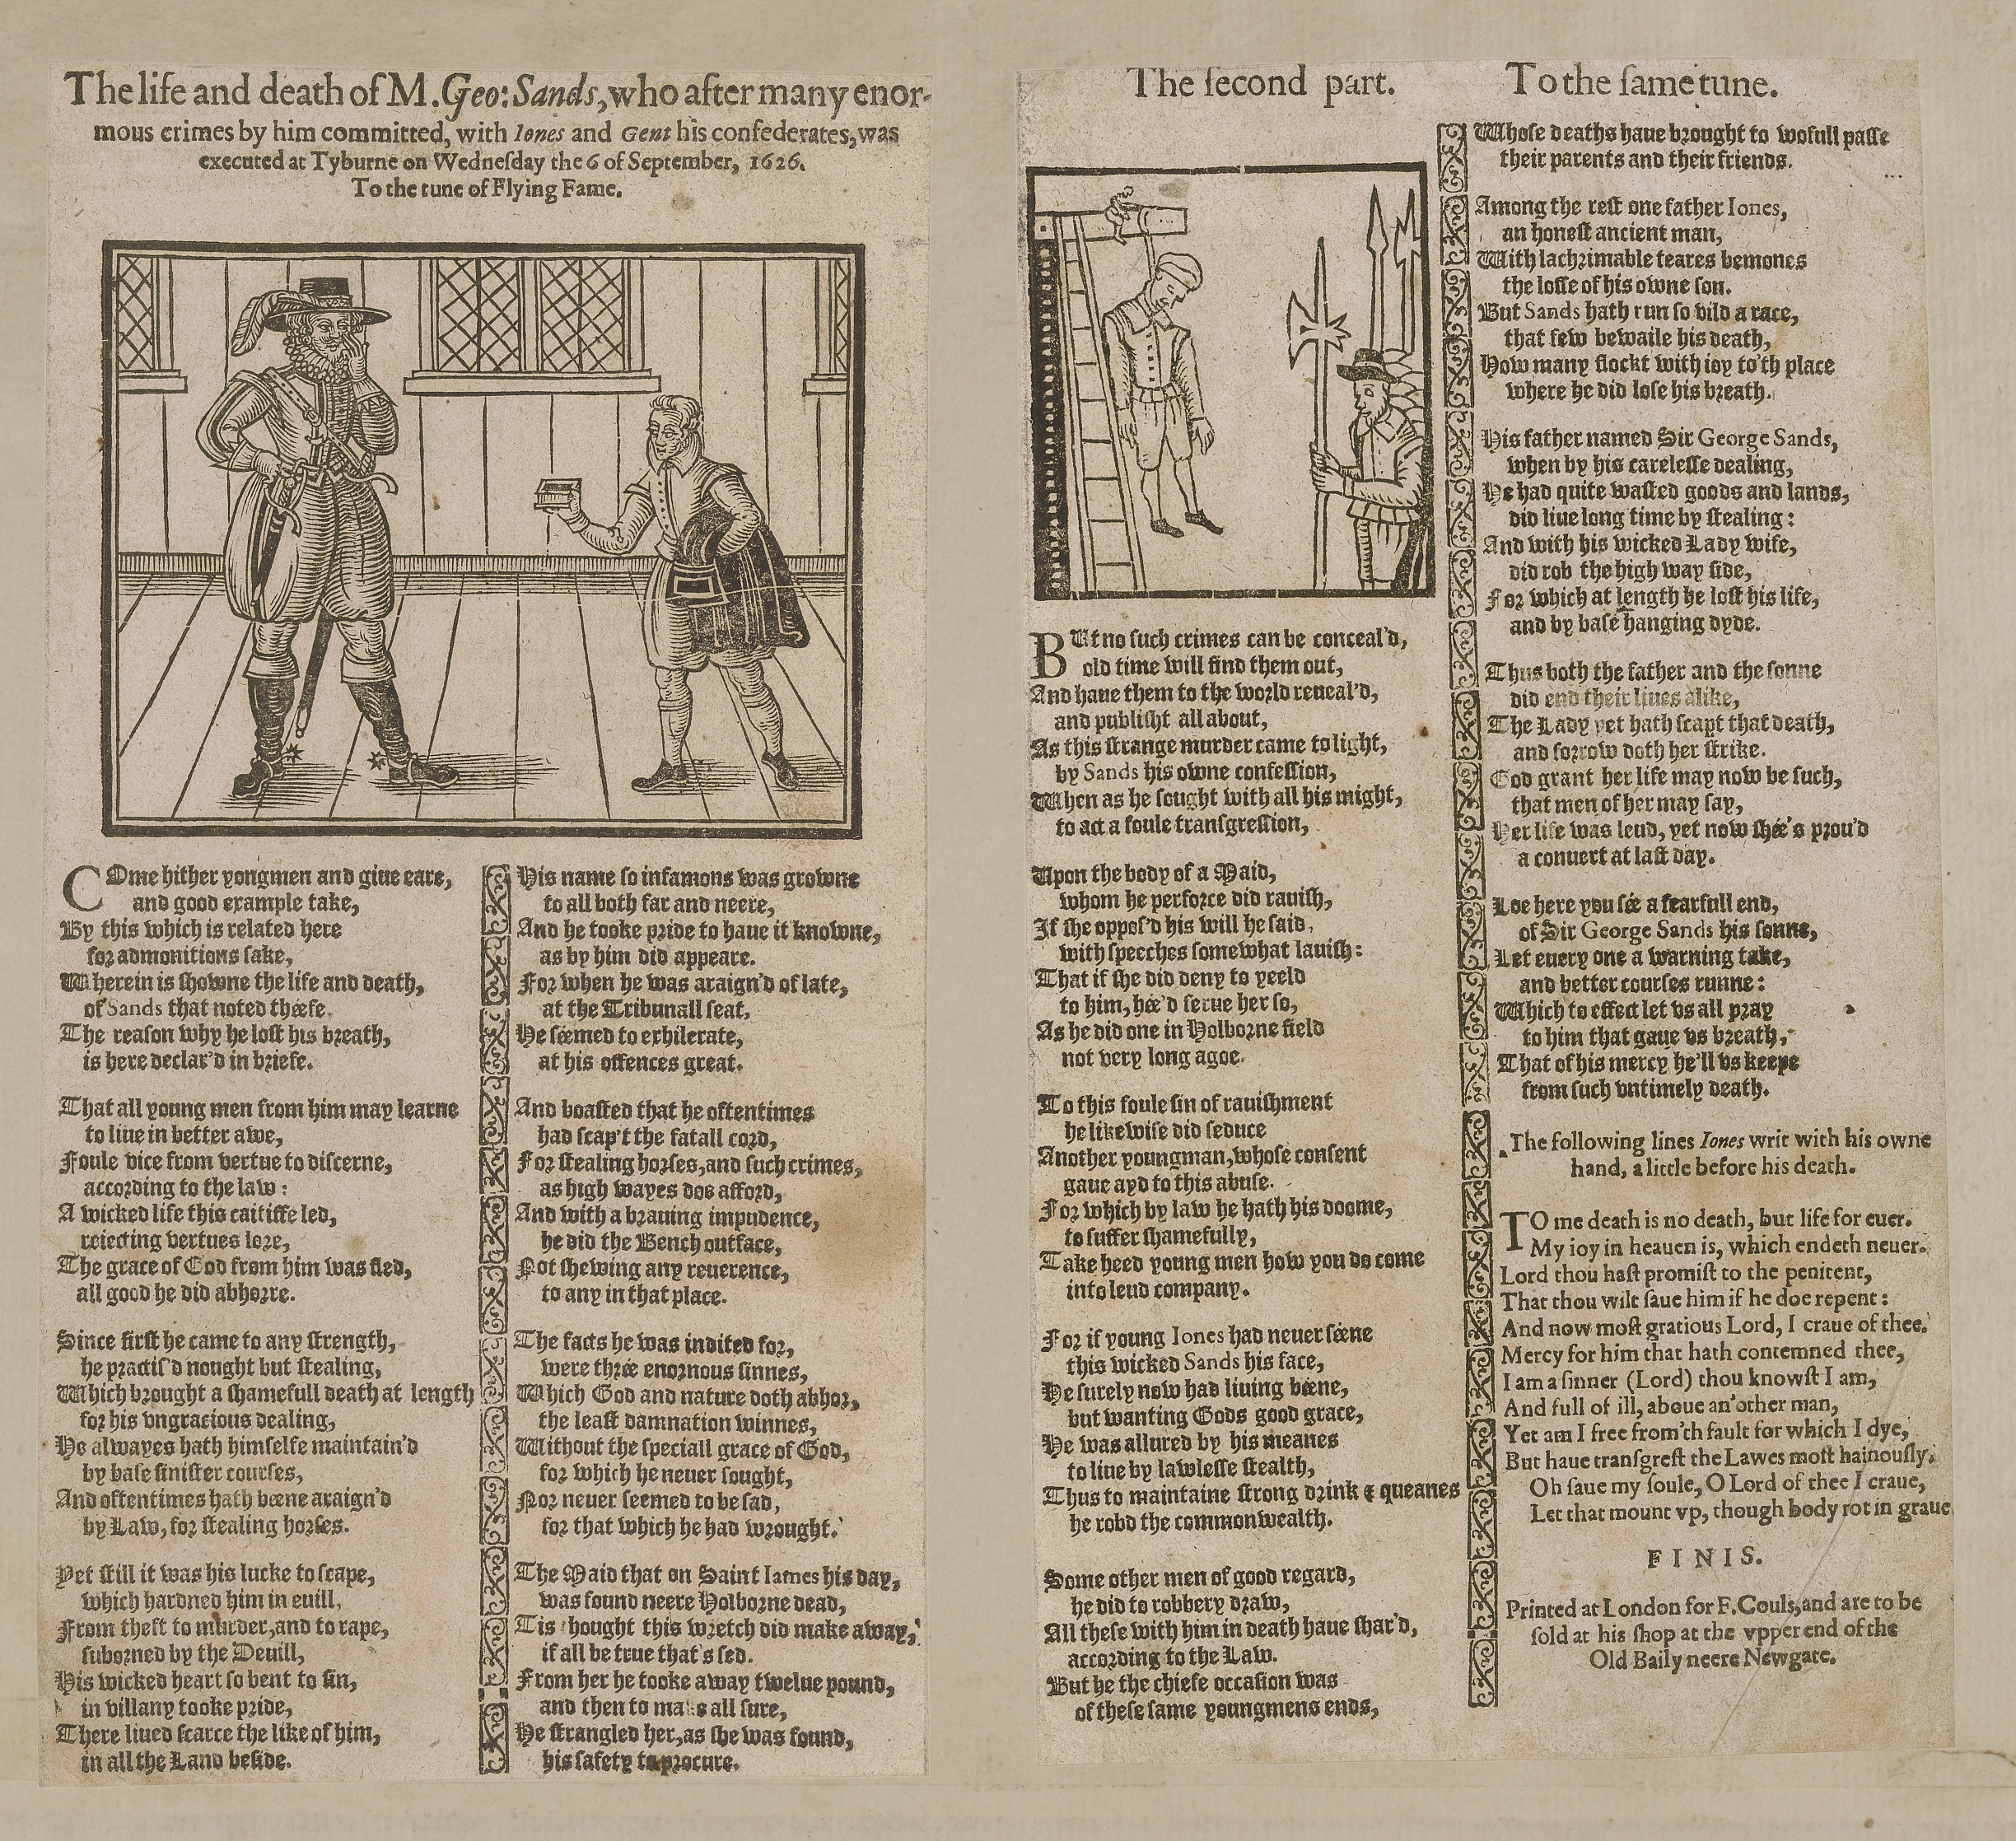 The life and death of M. Geo: Sands, who after many enor-
mous crimes by him committed, with Iones and Gent his confederates, was
executed at Tyburne on Wednesday the 6 of September, 1626.
To the tune of Flying Fame.
COme hither yongmen and giue eare,
and good example take,
By this which is related here
for admonitions sake,
Wherein is showne the life and death,
of Sands that noted theefe.
The reason why he lost his breath,
is here declar'd in briefe.
That all young men from him may learne
to liue in better awe,
Foule vice from vertue to discerne,
according to the law:
A wicked life this caitiffe led,
reiecting vertues lore,
The grace of God from him was fled,
all good he did abhorre.
Since first he came to any strength,
he practis'd nought but stealing,
Which brought a shamefull death at length
for his vngracious dealing,
He alwayes hath himselfe maintain'd
by base sinister courses,
And oftentimes hath beene araign'd
by Law, for stealing horses.
Yet still it was his lucke to scape,
which hardned him in euill,
From theft to murder, and to rape,
suborned by the Deuill,
His wicked heart so bent to sin,
in villany tooke pride,
There liued scarce the like of him,
in all the Land beside.
His name so infamons was growne
to all both far and neere,
And he tooke pride to haue it knowne,
as by him did appeare.
For when he was araign'd of late,
at the Tribunall seat,
He séemed to exhilerate,
at his offences great.
And boasted that he oftentimes
had scap't the fatall cord,
For stealing horses, and such crimes,
as high wayes doe afford,
And with a brauing impudence,
he did the Bench outface,
Not shewing any reuerence,
to any in that place.
The facts he was indited for,
were thrée enornous sinnes,
Which God and nature doth abhor,
the least damnation winnes,
Without the speciall grace of God,
for which he neuer sought,
Nor neuer seemed to be sad,
for that which he had wrought.
The Maid that on Saint Iames his day,
was found neere Holborne dead,
Tis hought this wretch did make away,
if all be true that's sed.
From her he tooke away twelue pound,
and then to ma e all sure,
He strangled her, as she was found,
his safety to procure.
The second part. To the same tune.
BUt no such crimes can be conceal'd,
old time will find them out,
And haue them to the world reueal'd,
and publisht all about,
As this strange murder came to light,
by Sands his owne confession,
When as he sought with all his might,
to act a foule transgression,
Upon the body of a Maid,
whom he perforce did rauish,
If she oppos'd his will he said,
with speeches somewhat lauish:
That if she did deny to yeeld
to him, hée'd serue her so,
As he did one in Holborne field
not very long agoe.
To this foule sin of rauishment
he likewise did seduce
Another youngman, whose consent
gaue ayd to this abuse.
For which by law he hath his doome,
to suffer shamefully,
Take heed young men how you do come
into leud company.
For if young Iones had neuer séene
this wicked Sands his face,
He surely now had liuing béene,
but wanting Gods good grace,
He was allured by his meanes
to liue by lawlesse stealth,
Thus to maintaine strong drink & queanes
he robd the commonwealth.
Some other men of good regard,
he did to robbery draw,
All these with him in death haue shar'd,
according to the Law.
But he the chiefe occasion was
of these same youngmens ends,
Whose deaths haue brought to wofull passe
their parents and their friends.
Among the rest one father Iones,
an honest ancient man,
With lachrimable teares bemones
the losse of his owne son.
But Sands hath run so vild a race,
that few bewaile his death,
How many flockt with ioy to'th place
where he did lose his breath.
His father named Sir George Sands,
when by his carelesse dealing,
He had quite wasted goods and lands,
did liue long time by stealing:
And with his wicked Lady wife,
did rob the high way side,
For which at length he lost his life,
and by base hanging dyde.
Thus both the father and the sonne
did end their liues alike,
The Lady yet hath scapt that death,
and sorrow doth her strike.
God grant her life may now be such,
that men of her may say,
Her life was leud, yet now shée's prou'd
a conuert at last day.
Loe here you sée a fearfull end,
of Sir George Sands his sonne,
Let euery one a warning take,
and better courses runne:
Which to effect let vs all pray
to him that gaue vs breath,
That of his mercy he'll vs keepe
from such vntimely death.
The following lines Iones writ with his owne
hand, a little before his death.
TO me death is no death, but life for euer.
My ioy in heauen is, which endeth neuer.
Lord thou hast promist to the penitent,
That thou wilt saue him if he doe repent:
And now most gratious Lord, I craue of thee.
Mercy for him that hath contemned thee,
I am a sinner (Lord) thou knowst I am,
And full of ill, aboue an'other man,
Yet am I free from'th fault for which I dye,
But haue transgrest the Lawes most hainously.
Oh saue my soule, O Lord of thee I craue,
Let that mount vp, though body rot in graue
FINIS.
Printed at London for F. Couls, and are to be
sold at his shop at the vpper end of the
Old Baily neere Newgate.